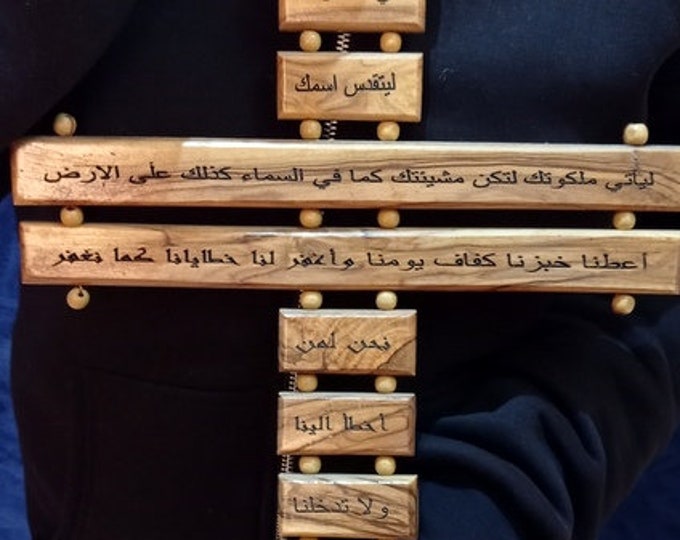 ليتقدس اسمك
ليأتي ملكوتك لتكن مشيئتك كما في السماء كذلك على الارض
أعطنا خبزنا كفاف يومنا وأغفر لنا خطايانا كما نغفر
نحن لمن
أخطأ الينا
ولا تدخلنا